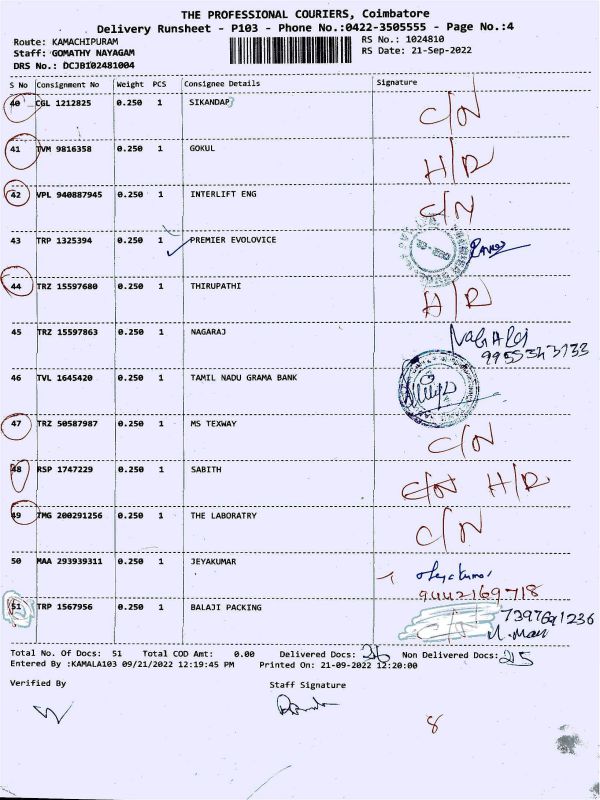 THE PROFESSIONAL COURIERS, Coimbatore
Delivery Runsheet - P103 - Phone No.:0422-3505555 - Page No.:4
Route: KAMACHIPURAM
RS No.: 1024810
Staff: GOMATHY NAYAGAM
RS Date: 21-Sep-2022
DRS No.: DCJB102481004
S No Consignment No Weight PCS Consignee Details Signature
40 CGL 1212825 0.250 1 SIKANDAP C/N
41 TVM 9816358 0.250 1 GOKUL H/R
42 VPL 940887945 0.250 1 INTERLIFT ENG C/N
43 TRP 1325394 0.250 1 PREMIER EVOLOVICE
44 TRZ 15597680 0.250 1 THIRUPATHI H/R
45 TRZ 15597863 0.250 1 NAGARAJ NAGARAJ
46 TVL 1645420 0.250 1 TAMIL NADU GRAMA BANK
47 TRZ 50587987 0.250 1 MS TEXWAY C/N
48 RSP 1747229 0.250 1 SABITH C/N H/R
49 TMG 200291256 0.250 1 THE LABORATRY C/N
50 MAA 293939311 0.250 1 JEYAKUMAR Jeyakumar
9442169718
51 TRP 1567956 0.250 1 BALAJI PACKING C/N 7397691236
Total No. Of Docs: 51 Total COD Amt: 0.00 Delivered Docs: 26 Non Delivered Docs: 25
Entered By :KAMALA103 09/21/2022 12:19:45 PM Printed On: 21-09-2022 12:20:00
Verified By Staff Signature
8